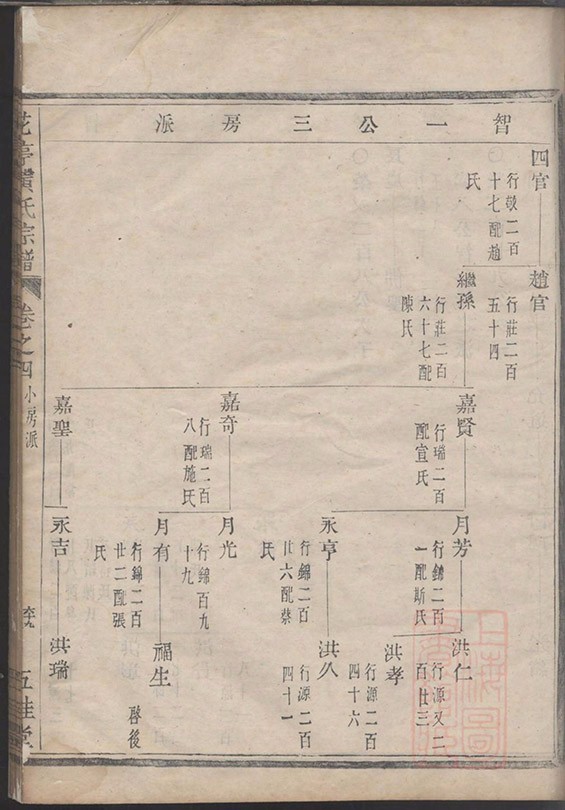 智一公三房派
四官
行敬二百
十七配趙
氏
趙官
行莊二百
五十四
繼孫
行莊二百
六十七配
陳氏
嘉賢
行瑞二百
配宣氏
嘉奇
行瑞二百
八配施氏
嘉聖
月芳
行錦二百
一配斯氏
永亨
行錦二百
廿六配蔡
氏
月光
行錦百九
十九
月有
行錦二百
廿二配張
氏
永吉
洪仁
行源又二
百廿三
洪孝
行源二百
四十六
洪久
行源二百
四十一
福生
啓後
洪瑞
花亭黃氏宗譜
卷之四
小房派
五桂堂